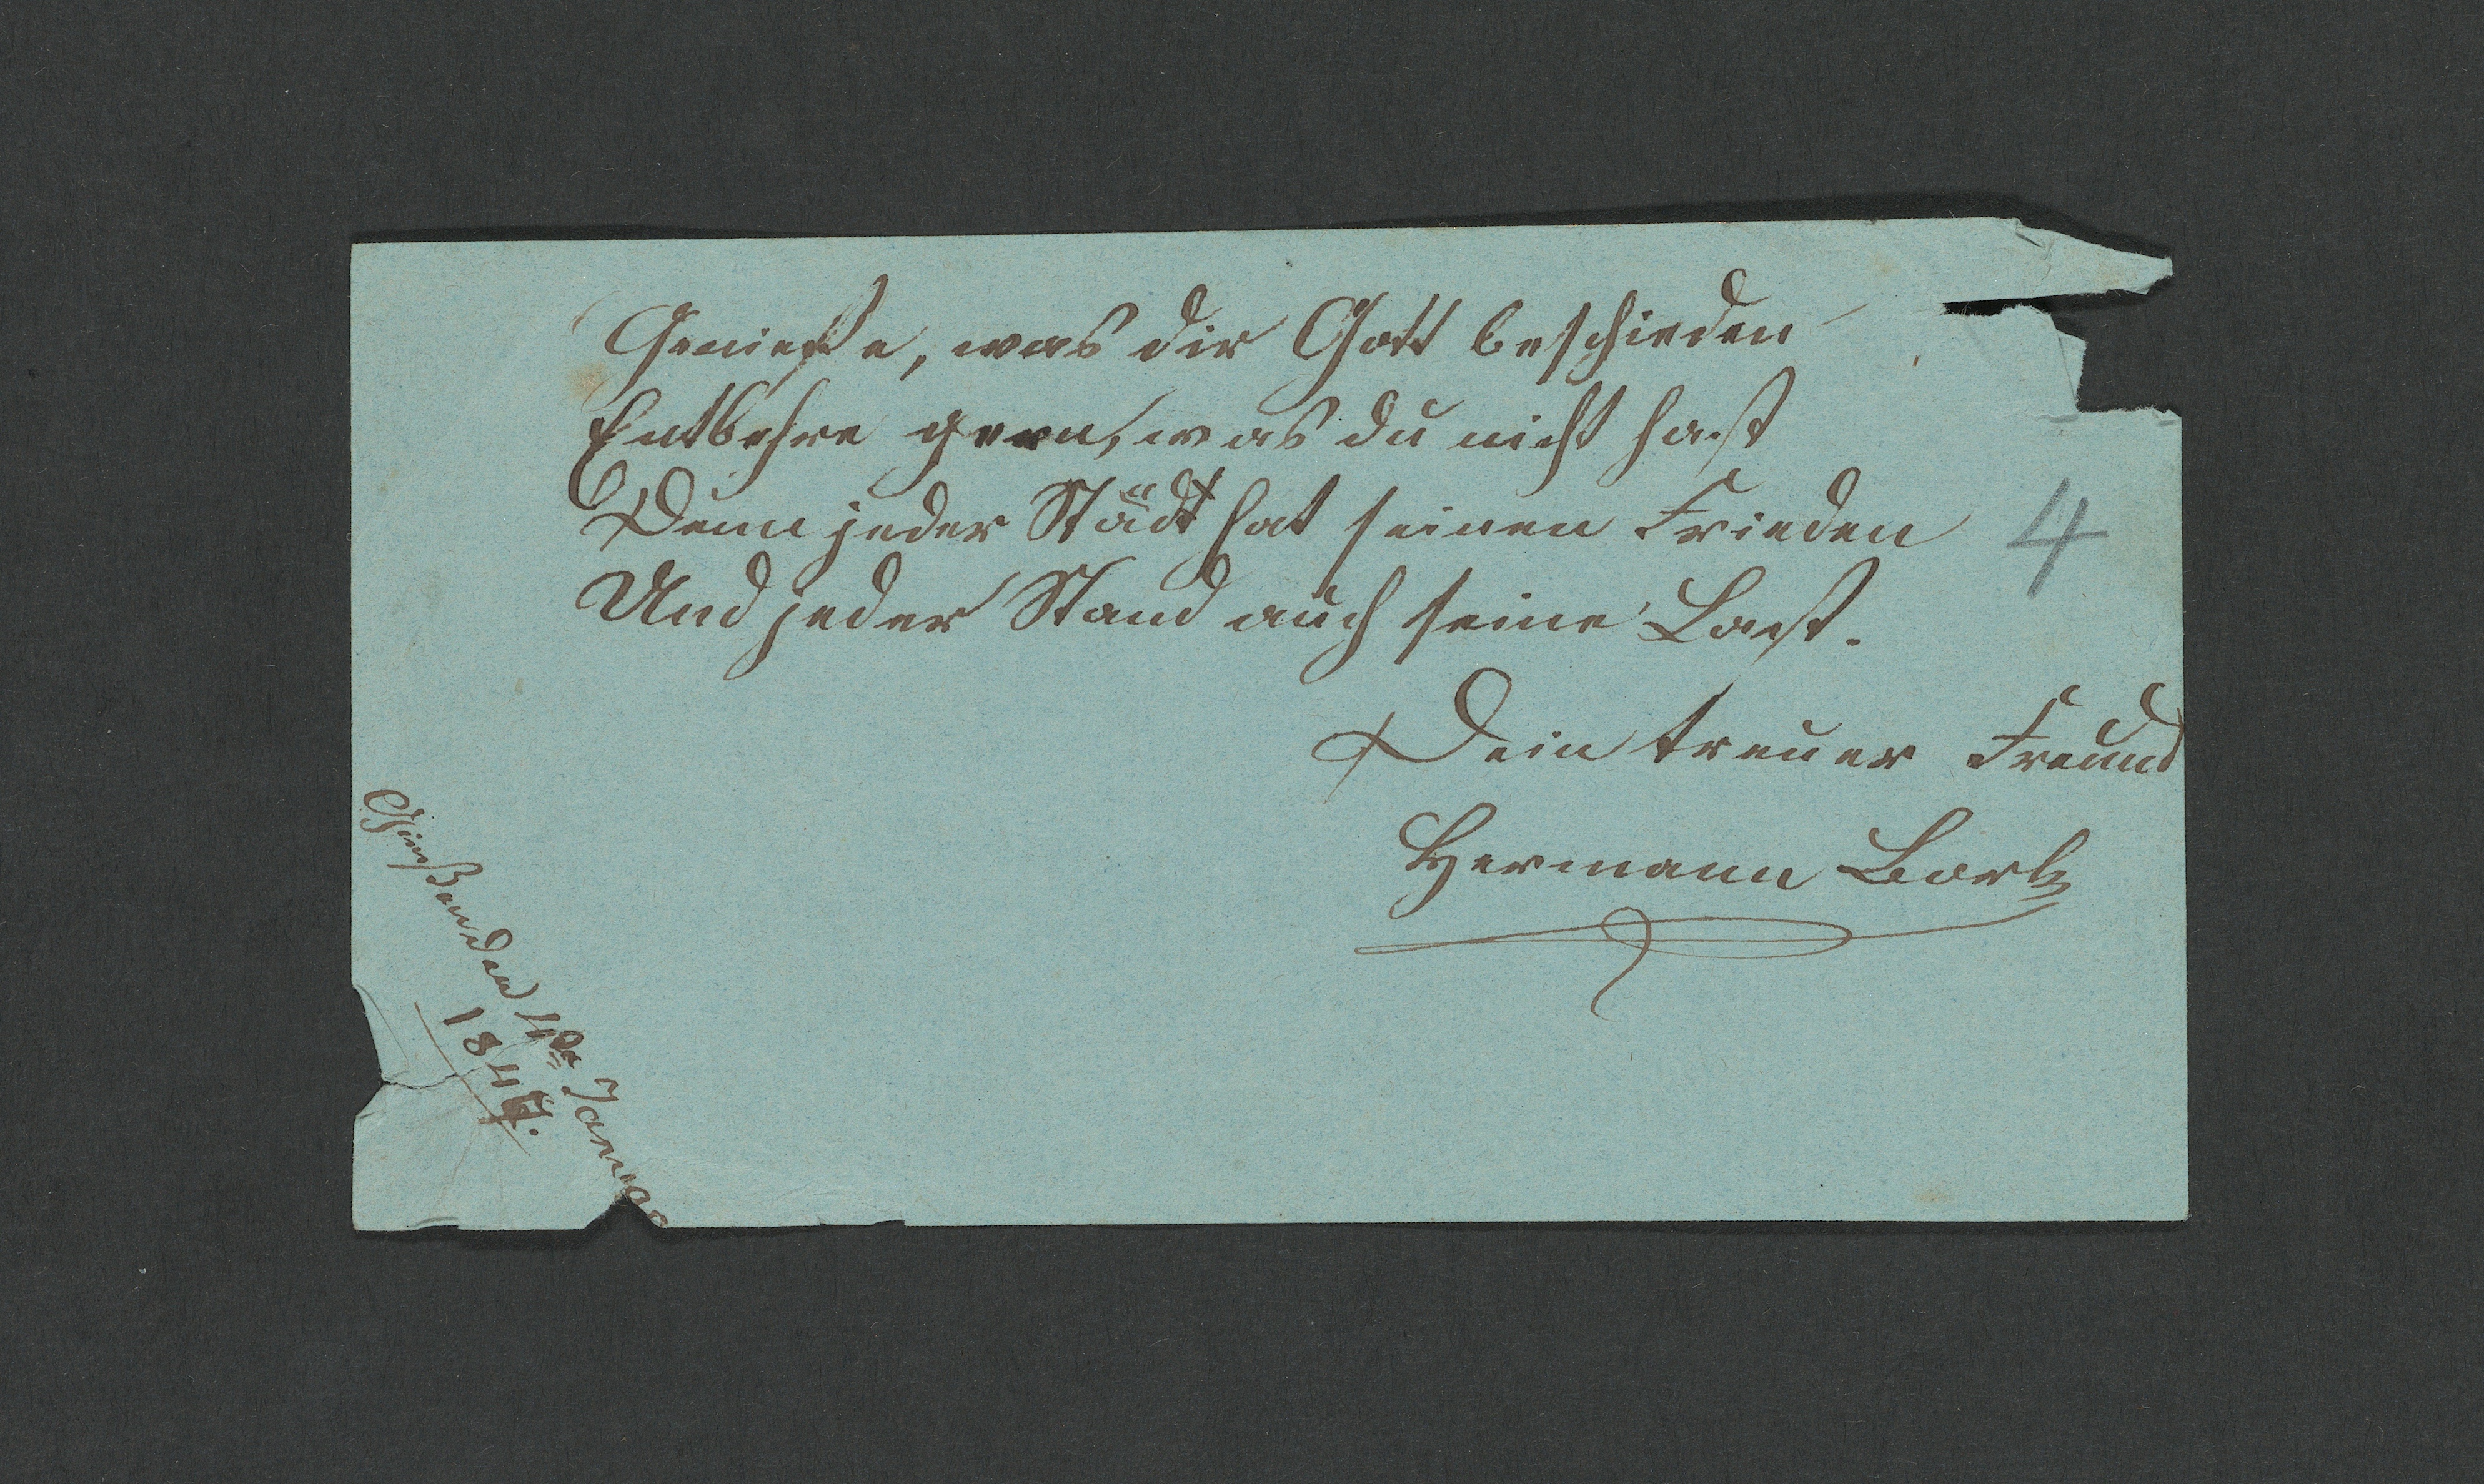 Genieße, was dir Gott beschieden
Entbehre gern, was du nicht hast
Denn jeder Städt hat seinen Frieden
Und jeder Stand auch seine Last.
4
Dein treuer Freund
Hermann
Gießen den 4ten Januar